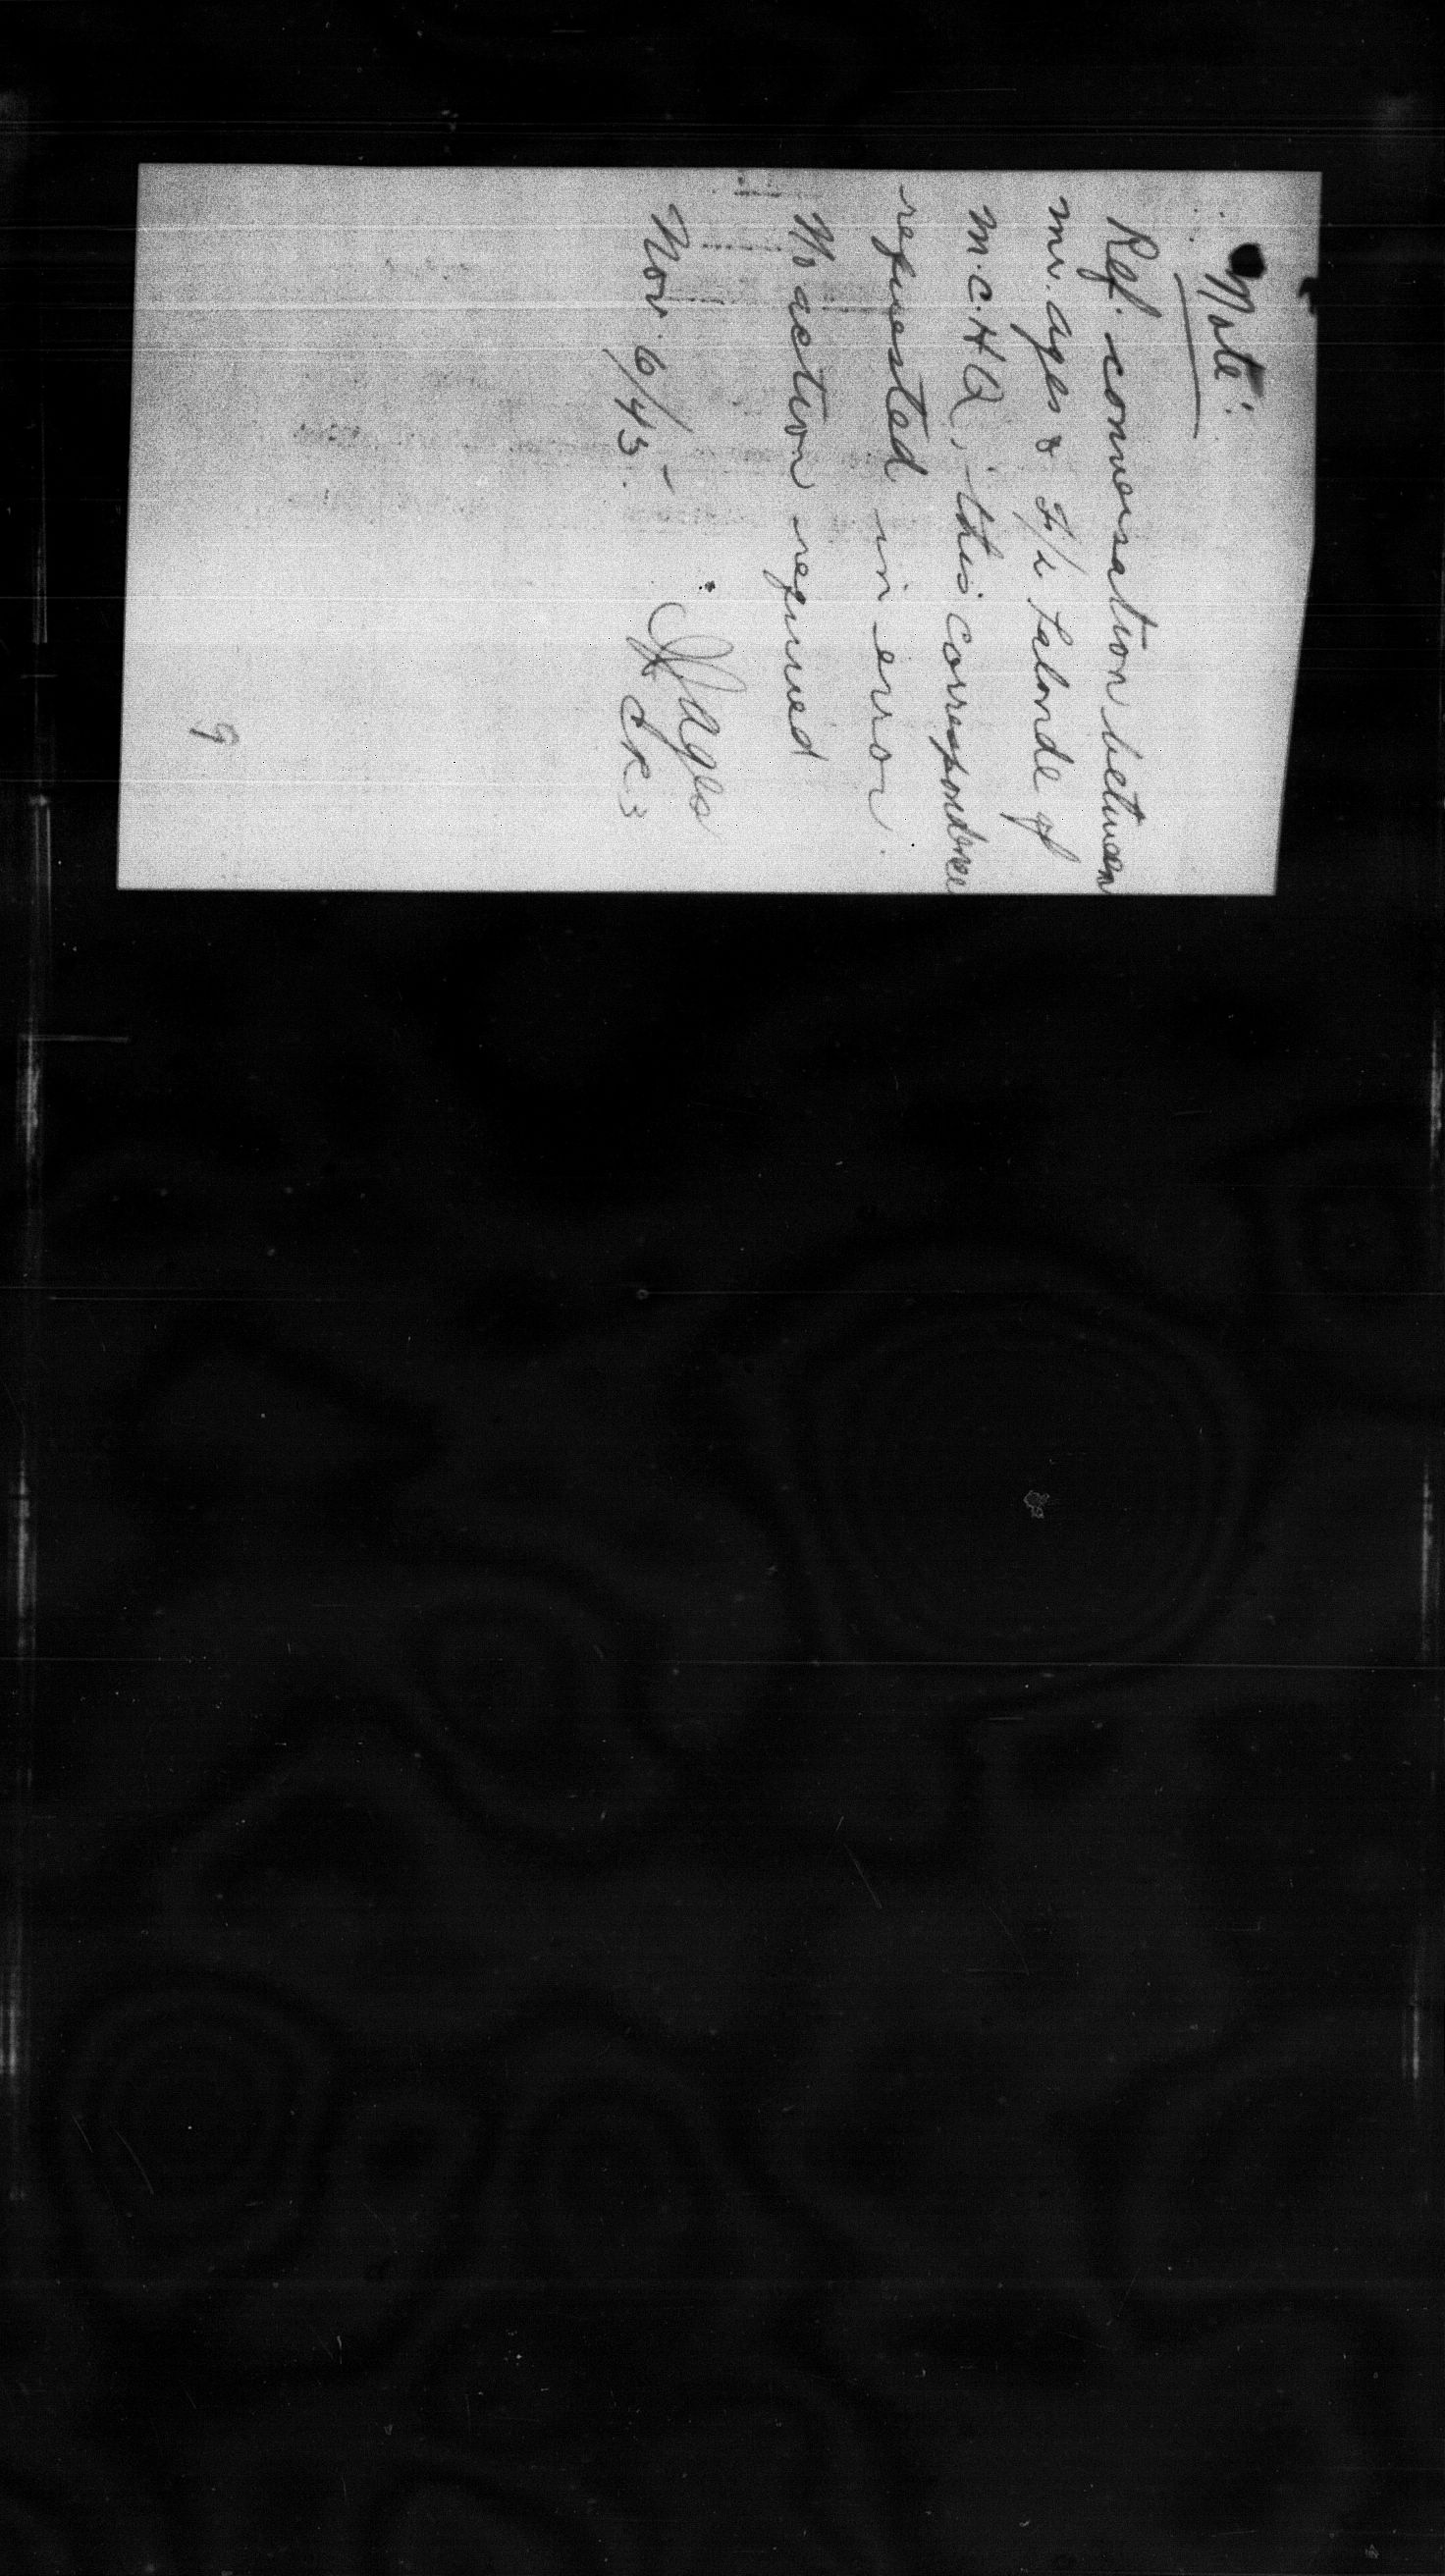 Note:
Ref. conversation between
Mr. Ages & F/L Lalonde of
M.C.H.Q., this correspondence
requested in error.
No action required
Ages
Nov. 6/43 -
CR3
9